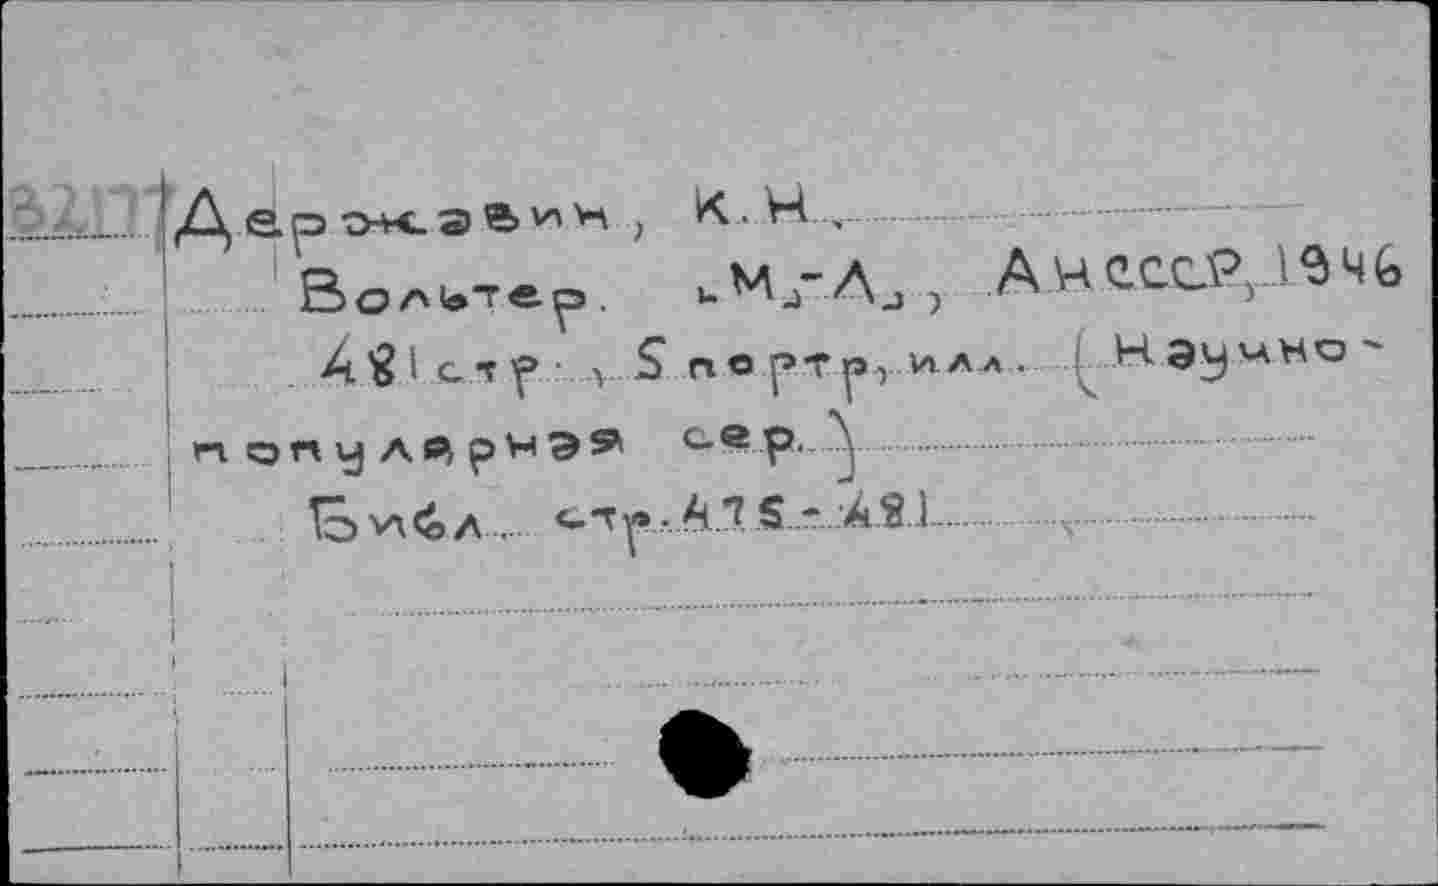 Державин, К.Н.
Вольтер. М.-Л., АН СССР, 1946
481 стр., 5 портр, илл. (Научно-
популярная сер.)
Библ. стр. 475-481